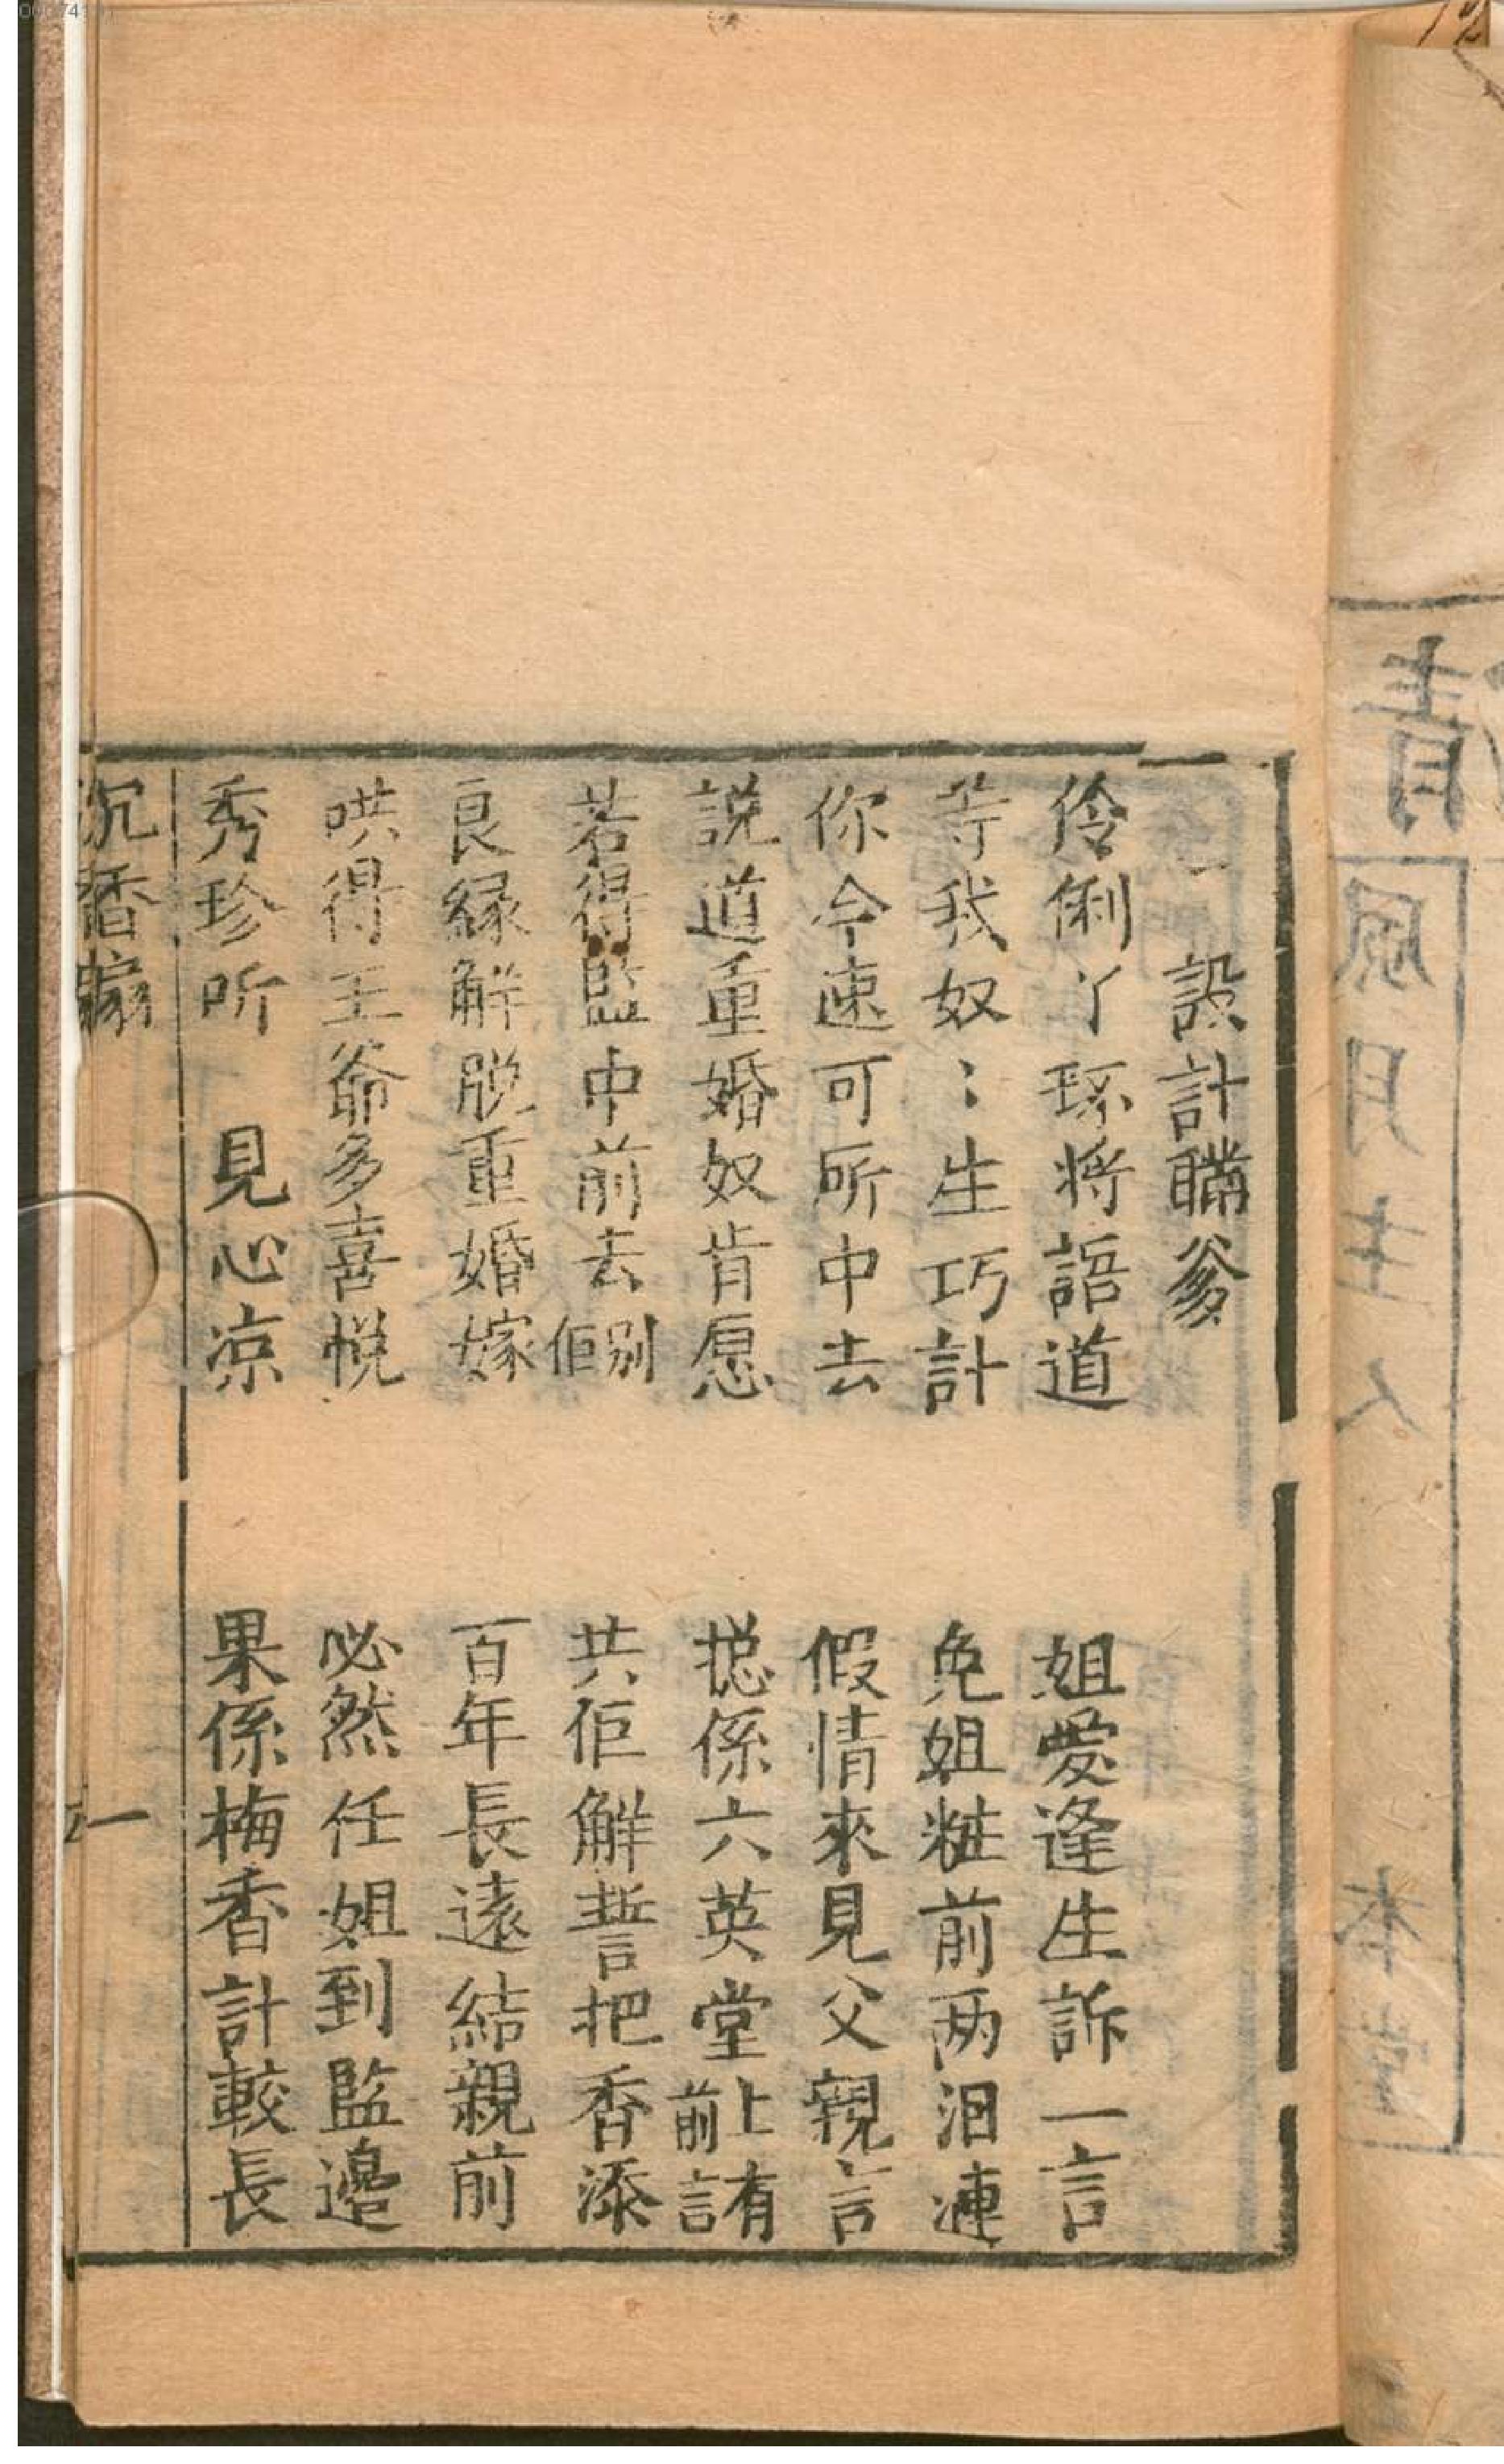 設計瞞爹
伶俐丫环將語道　姐愛逢生訴一言
等我奴〻生巧計　免姐粧前两泪漣
你今速可所中去　假情來見父親言
説道重婚奴肯愿　揔係六英堂上有前言
若得監中前去別佢　共佢解誓把香添
良縁解脱重婚嫁　百年長遠結親前
哄得王爺多喜悅　必然任姐到監邊
秀珍所　見心凉　果係梅香計較長
沉香
一